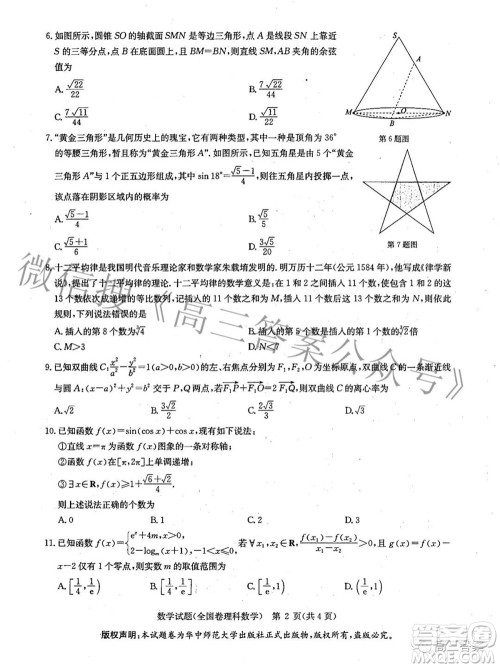 6. 如图所示，圆锥 SO 的轴截面 SMN 是等边三角形，点 A 是线段 SN 上靠近
S 的三等分点，点 B 在底面圆上，且 BM=BN，则直线 SM，AB 夹角的余弦
值为
A. √22/22  B. 7√22/44
C. √11/22  D. 7√11/44
S
A
M O N
B
第 6 题图
7. “黄金三角形”是几何历史上的瑰宝，它有两种类型，其中一种是顶角为 36°
的等腰三角形，暂且称为“黄金三角形 A”. 如图所示，已知五角星是由 5 个“黄金
三角形 A”与 1 个正五边形组成，其中 sin 18°=(√5-1)/4，则往五角星内投掷一点，
该点落在阴影区域内的概率为
A. (√5-1)/4  B. √5/5
C. (√5+1)/6  D. √5/20
第 7 题图
8. 十二平均律是我国明代音乐理论家和数学家朱载堉发明的. 明万历十二年(公元 1584 年)，他写成《律学新
说》，提出了十二平均律的理论. 十二平均律的数学意义是：在 1 和 2 之间插入 11 个数，使包含 1 和 2 的这
13 个数依次成递增的等比数列，
则下列说法错误的是
A. 插入的第 8 个数为∛4  B. 插入的第 5 个数是插入的第 1 个数的∛2倍
C. M>3  D. N<7
9. 已知双曲线 C: x²/a²-y²/b²=1(a>0,b>0) 的左、右焦点分别为 F₁,F₂，O 为坐标原点，双曲线 C 的一条渐近线
与圆 A:(x-a)²+y²=b² 交于 P,Q 两点，若 F₁P+F₁O=2F₁Q，则双曲线 C 的离心率为
A. √2  B. 3√2/2  C. √3  D.
10. 已知函数 f(x)=sin(cos x)+cos x，现有如下说法：
①直线 x=π 为函数 f(x) 图象的一条对称轴；
②f(x) 在[π,2π]上单调递增；
③∃x∈R,f(x)≥1+(√6+√2)/4.
则上述说法正确的个数为
A. 0  B. 1  C. 2  D. 3
11. 已知函数 f(x)={eˣ+4m,x>0, 2-logₘ(x+1),-1<x≤0}，若∀x₁,x₂∈R,(f(x₁)-f(x₂))/(x₁-x₂)>0，且 g(x)=f(x)-
x-2 仅有 1 个零点，则实数 m 的取值范围为
A. [1/4,1/e]  B. [1/4,1)  C. (1/4,1/e)  D. [1/e,1)
数学试题(全国卷理科数学) 第 2 页(共 4 页)
版权声明：本试题卷为华中师范大学出版社正式出版物，版权所有，盗版必究。
微信搜《高三答案公众号》